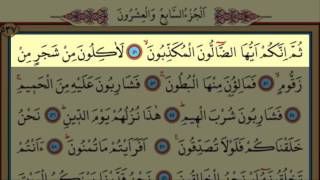 الجزء السابع والعشرون
ثُمَّ اِنَّكُمْ اَيُّهَا الضَّٓالُّونَ الْمُكَذِّبُونَۙ ﴿٥١﴾ لَاٰكِلُونَ مِنْ شَجَرٍ مِنْ
زَقُّومٍۙ ﴿٥٢﴾ فَمَالِؤُ۫نَ مِنْهَا الْبُطُونَۚ ﴿٥٣﴾ فَشَارِبُونَ عَلَيْهِ مِنَ الْحَم۪يمِۚ ﴿٥٤﴾
فَشَارِبُونَ شُرْبَ الْه۪يمِۜ ﴿٥٥﴾ هٰذَا نُزُلُهُمْ يَوْمَ الدّ۪ينِۜ ﴿٥٦﴾ نَحْنُ
خَلَقْنَاكُمْ فَلَوْلَا تُصَدِّقُونَ ﴿٥٧﴾ اَفَرَاَيْتُمْ مَا تُمْنُونَۜ ﴿٥٨﴾ ءَاَنْتُمْ